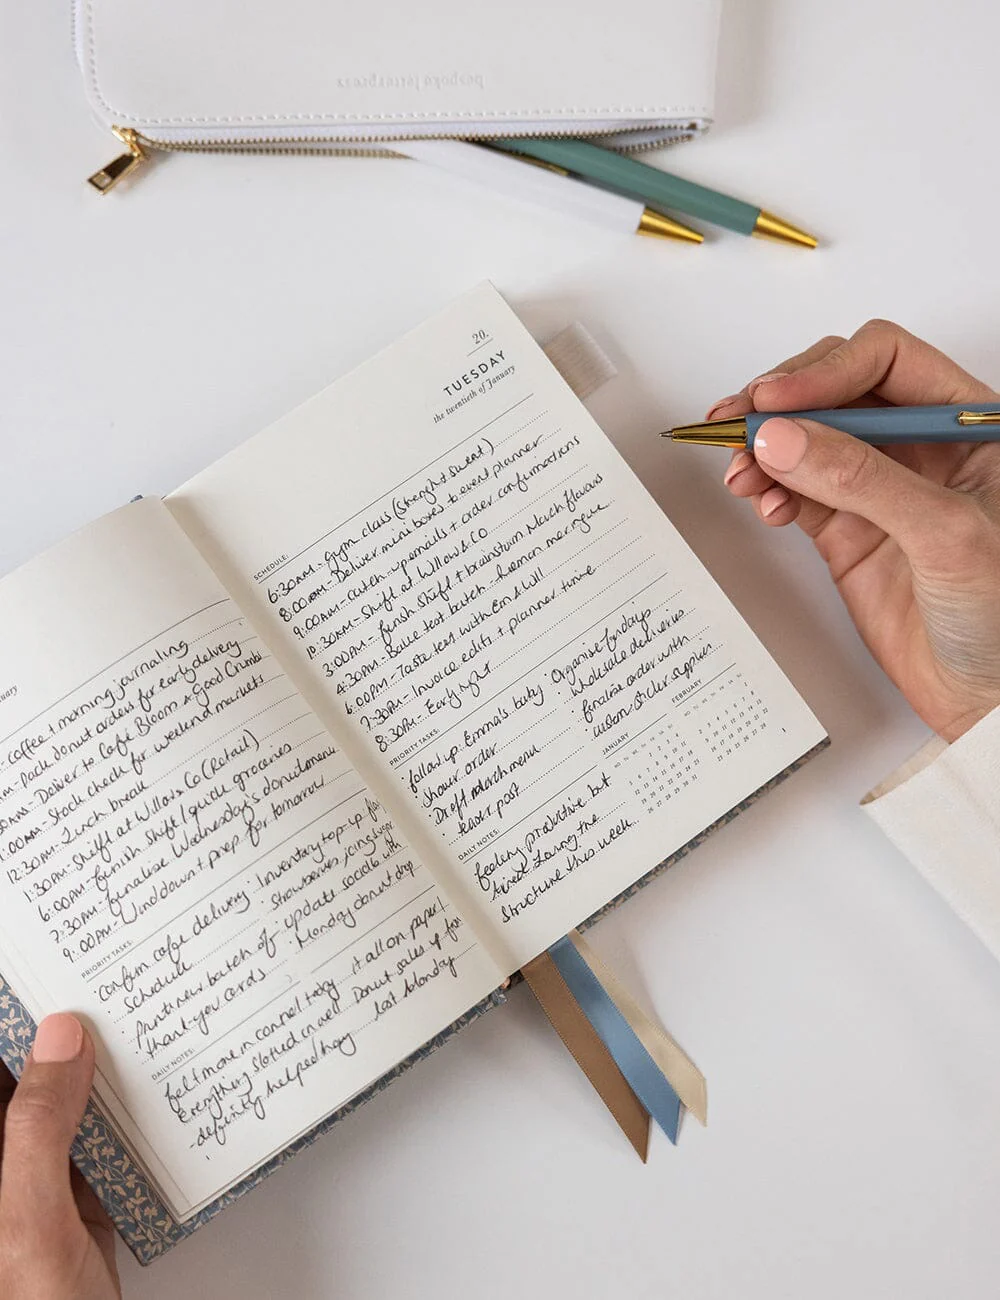 bespoke letterpress
nuary
- coffee + morning journaling
AM- Pack donut orders for early delivery
AM- Deliver to Café Bloom + Good Crumb
1:00AM- Stock check for weekend markets
12:30AM- Lunch break
1:30PM- Shift at Willow & Co (Retail)
6:00PM- finish shift / quick groceries
7:30PM- finalise Wednesday's donut menu
9:00PM- Wind down + prep for tomorrow
PRIORITY TASKS:
confirm cafe delivery
schedule
· Print new batch of
thank-you cards
· Inventory top-up
strawberries, icing sugar
· update socials with
Monday donut drop
DAILY NOTES:
felt more in control today
Everything slotted in well
- definitely helped having
it all on paper!
Donut sales up from
last Monday
20.
TUESDAY
the twentieth of January
SCHEDULE:
6:30AM- Gym class (Strenght sweat)
8:00AM- Deliver mini boxes to event planner
9:00AM- catch-up emails + order confirmations
10:30AM- Shift at Willow & CO
3:00PM- finish shift + brainstorm March flavours
4:30PM- Bake test batch - lemon meringue
6:00PM- Taste test with Em & Will
7:30PM- Invoice edits + planner time
8:30PM- Early night
PRIORITY TASKS:
· follow up Emma's baby
shower order
· Draft March menu
· tener post
· Organise fridays
wholesale deliveries
· finalise order with
custom sticker supplies
DAILY NOTES:
feeling productive but
tired. Loving the
structure this week.
JANUARY
FEBRUARY